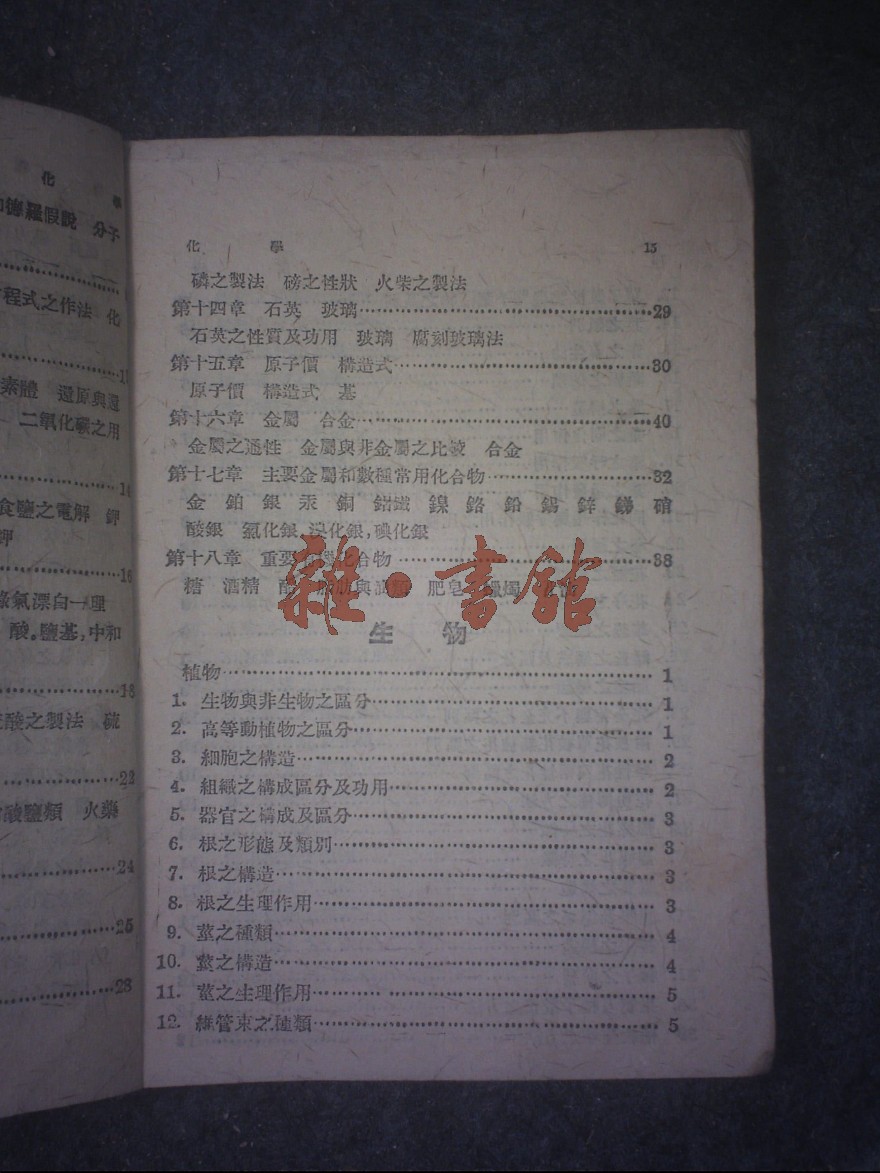 化
學
羅假說 分子
程式之作法 化
素體 還原與還
二氧化碳之用
14
食鹽之電解 鉀
鉀
16
氯漂白一理
酸。鹽基,中和
18
酸之製法 硫
22
酸鹽類 火藥
24
25
28
化 學 15
磷之製法 磅之性狀 火柴之製法
第十四章 石英 玻璃……29
石英之性質及功用 玻璃 腐刻玻璃法
第十五章 原子價 構造式……30
原子價 構造式 基
第十六章 金屬 合金……40
金屬之通性 金屬與非金屬之比較 合金
第十七章 主要金屬和數種常用化合物……32
金 鉑 銀 汞 銅 鐵 鎳 鉻 鉛 錫 鋅 銻 硝
酸銀 氯化銀,溴化銀,碘化銀
第十八章 重要 化合物……38
糖 酒精 脂肪與 類 肥皂 蠟燭
雜·書館
生 物
植物……1
1. 生物與非生物之區分……1
2. 高等動植物之區分……1
3. 細胞之構造……2
4. 組織之構成區分及功用……2
5. 器官之構成及區分……3
6. 根之形態及類別……3
7. 根之構造……3
8. 根之生理作用……3
9. 莖之種類……4
10. 莖之構造……4
11. 莖之生理作用……5
12. 維管束之種類……5